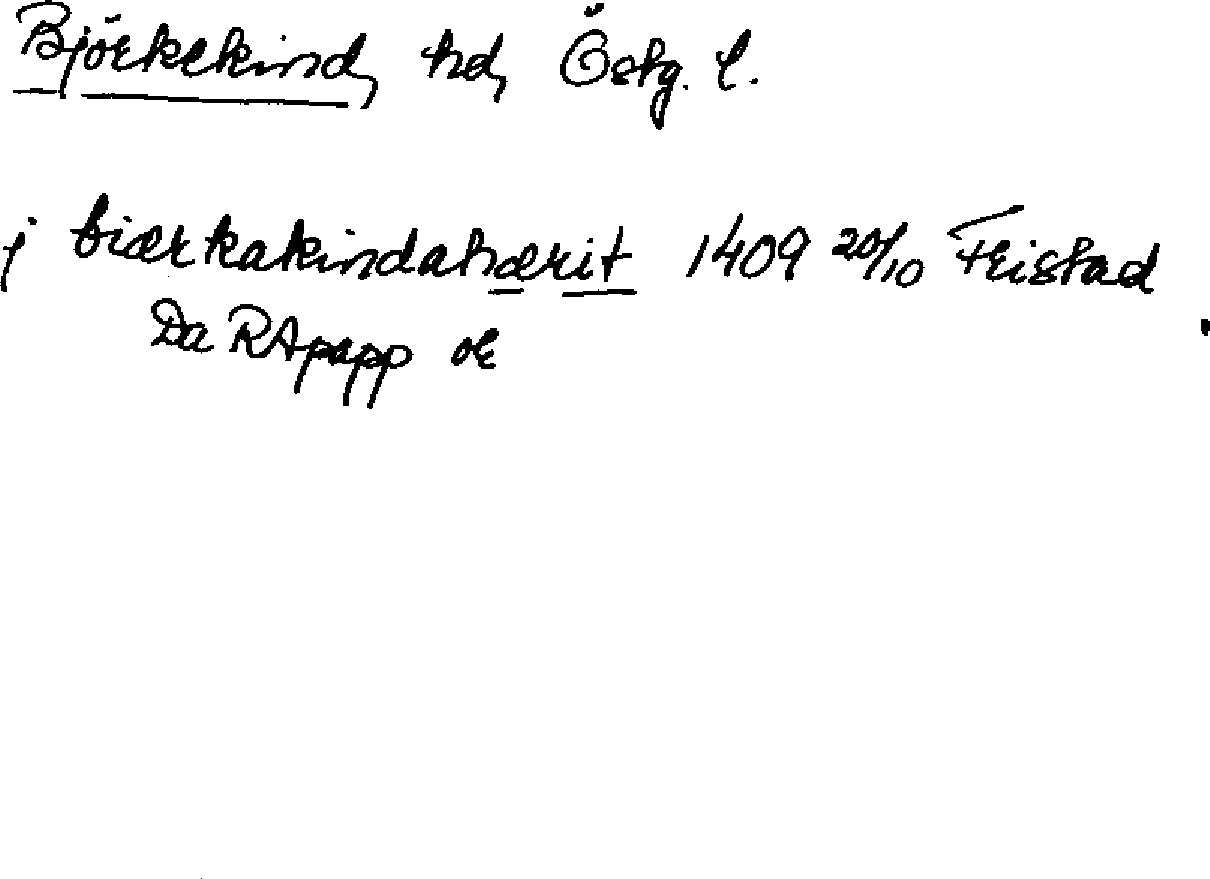 Björkekind, hd, Östg. l.
j biærkakindahærit 1409 20/10 Fristad
Da RApapp or